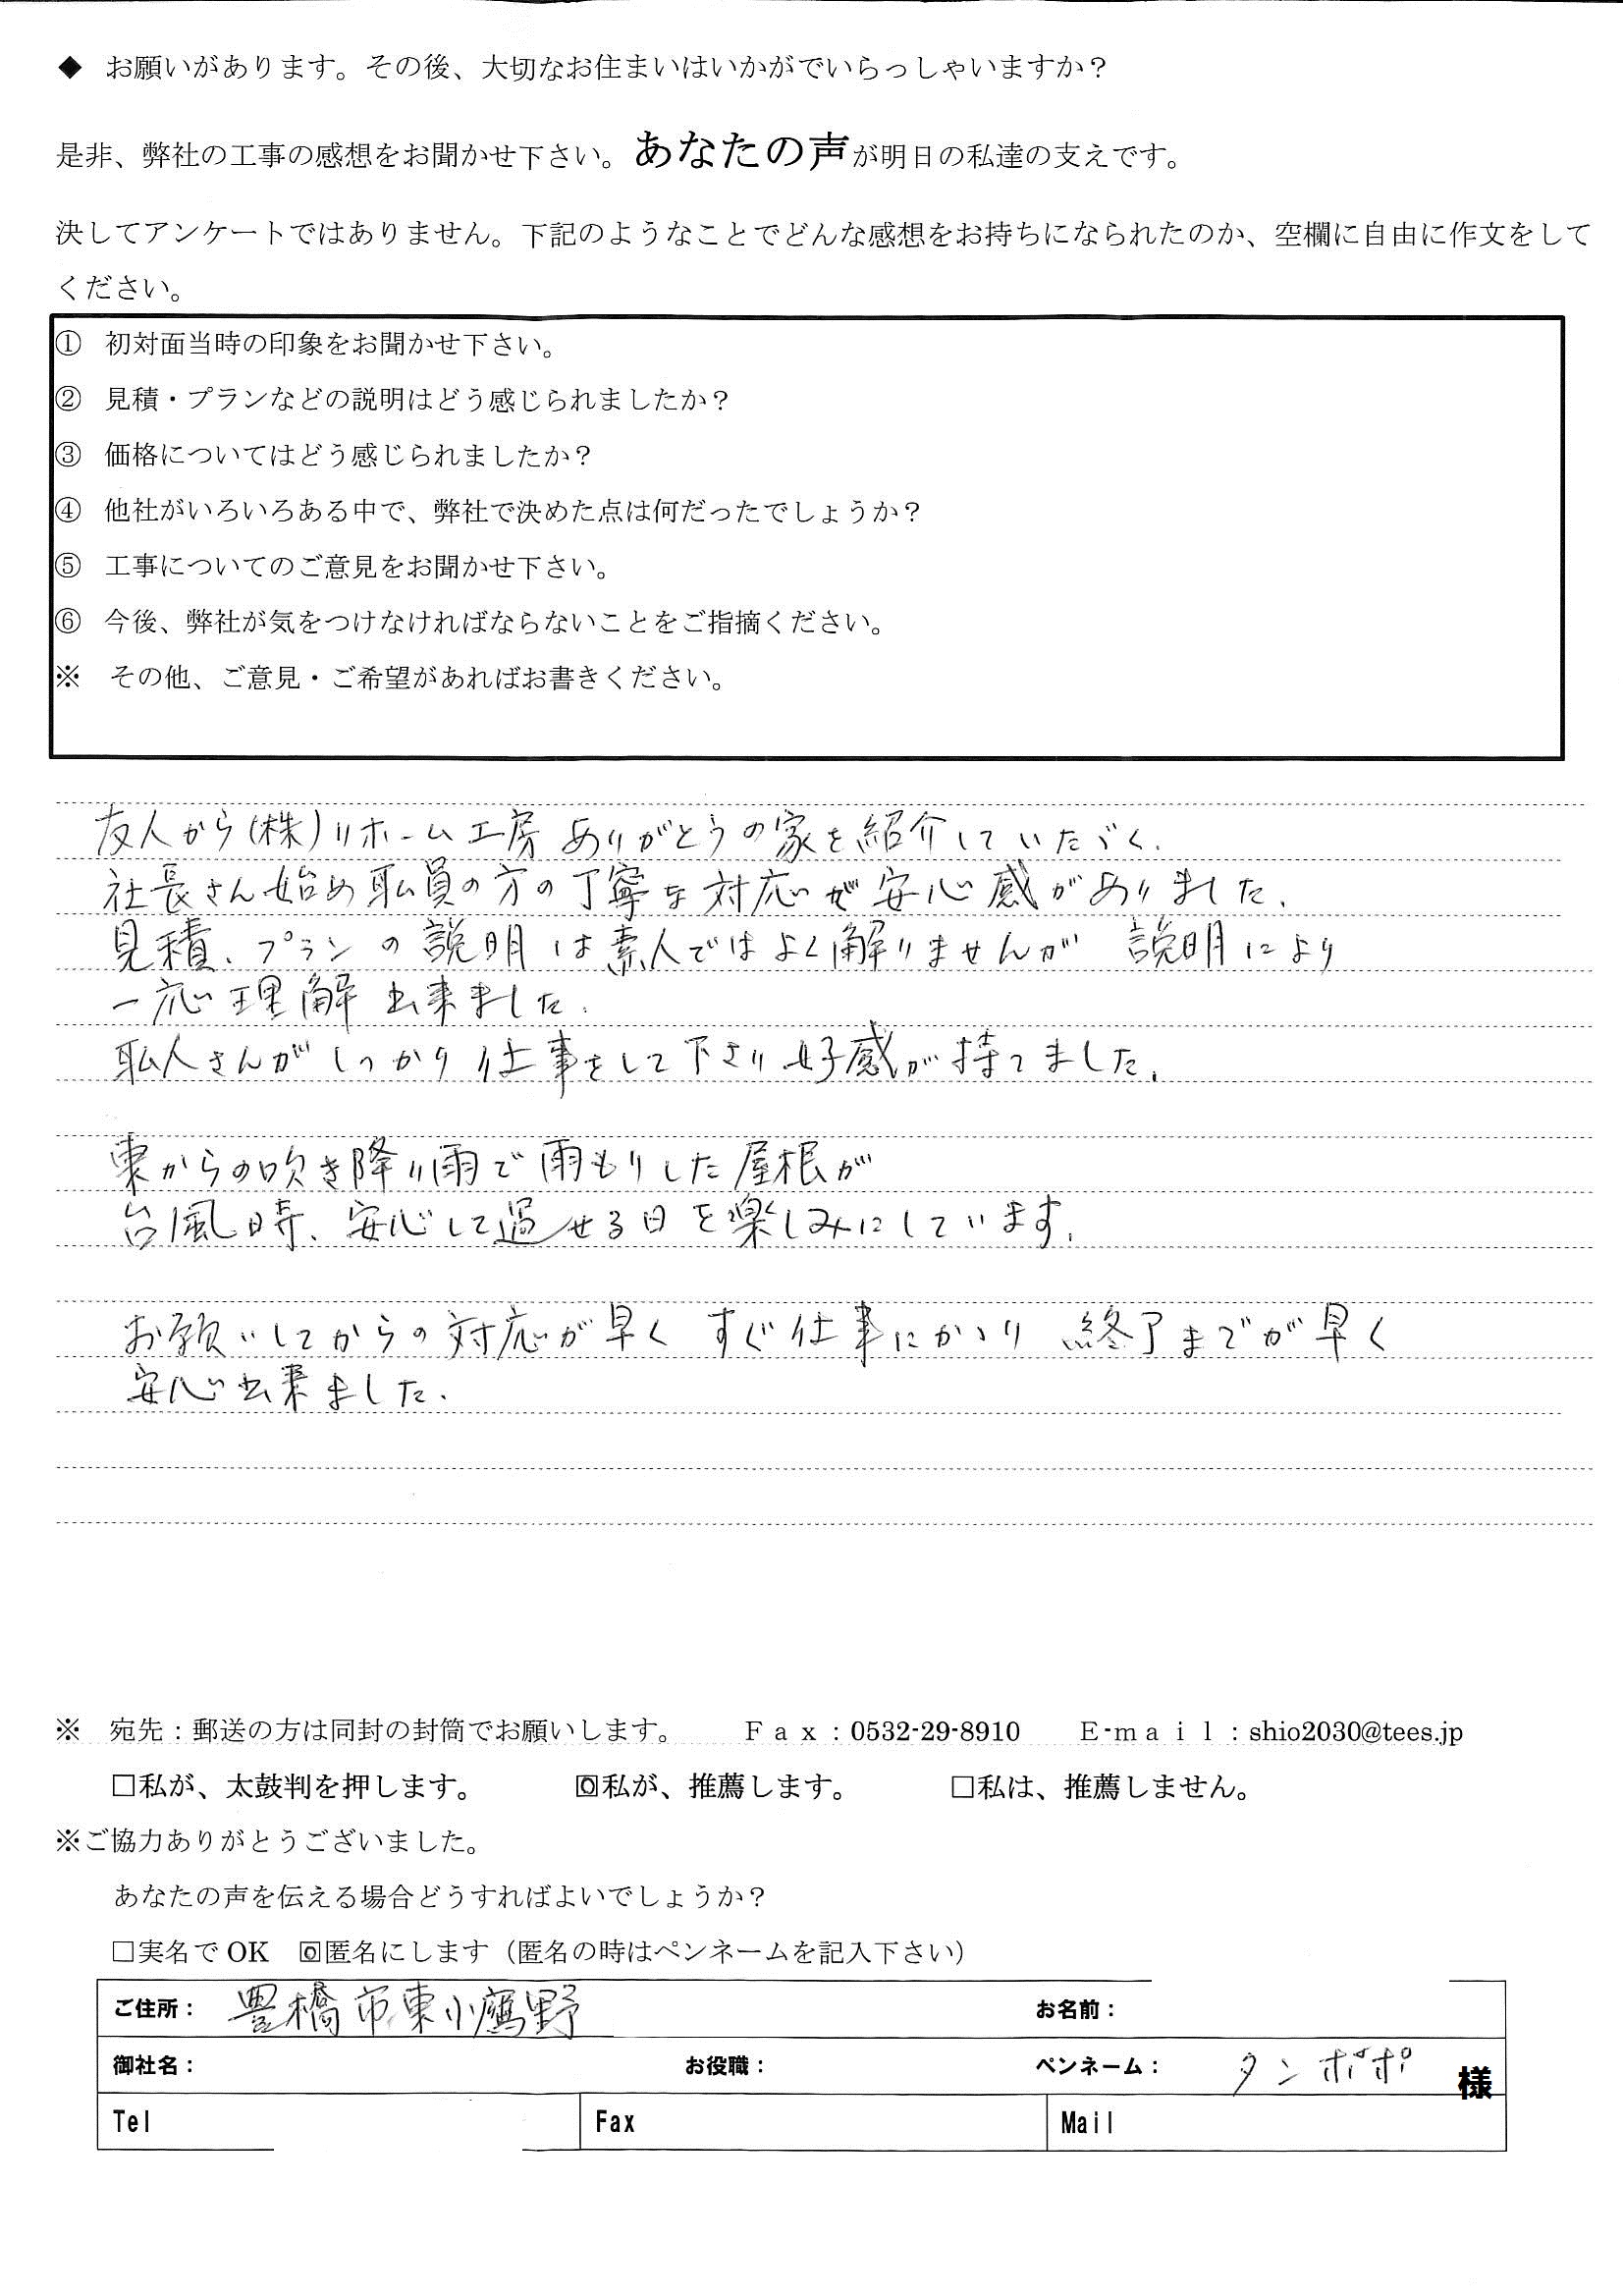 ◆ お願いがあります。その後、大切なお住まいはいかがでいらっしゃいますか？
是非、弊社の工事の感想をお聞かせ下さい。あなたの声が明日の私達の支えです。
決してアンケートではありません。下記のようなことでどんな感想をお持ちになられたのか、空欄に自由に作文をして
ください。
① 初対面当時の印象をお聞かせ下さい。
② 見積・プランなどの説明はどう感じられましたか？
③ 価格についてはどう感じられましたか？
④ 他社がいろいろある中で、弊社で決めた点は何だったでしょうか？
⑤ 工事についてのご意見をお聞かせ下さい。
⑥ 今後、弊社が気をつけなければならないことをご指摘ください。
※ その他、ご意見・ご希望があればお書きください。
友人から(株)リホーム工房ありがとうの家を紹介していたゞく.
社長さん始め職員の方の丁寧な対応が安心感がありました.
見積、プランの説明は素人ではよく解りませんが 説明により
一応理解出来ました.
職人さんがしっかり仕事をして下さり好感が持てました.
東からの吹き降り雨で雨もりした屋根が
台風時、安心して過せる日を楽しみにしています.
お願いしてからの対応が早く すぐ仕事にかゝり 終了までが早く
安心出来ました.
※ 宛先：郵送の方は同封の封筒でお願いします。 Ｆａｘ：0532-29-8910 Ｅ-ｍａｉｌ：shio2030@tees.jp
□私が、太鼓判を押します。 ☑私が、推薦します。 □私は、推薦しません。
※ご協力ありがとうございました。
あなたの声を伝える場合どうすればよいでしょうか？
□実名で OK ☑匿名にします（匿名の時はペンネームを記入下さい）
ご住所： 豊橋市東小鷹野 お名前：
御社名： お役職： ペンネーム： タンポポ 様
Tel Fax Mail